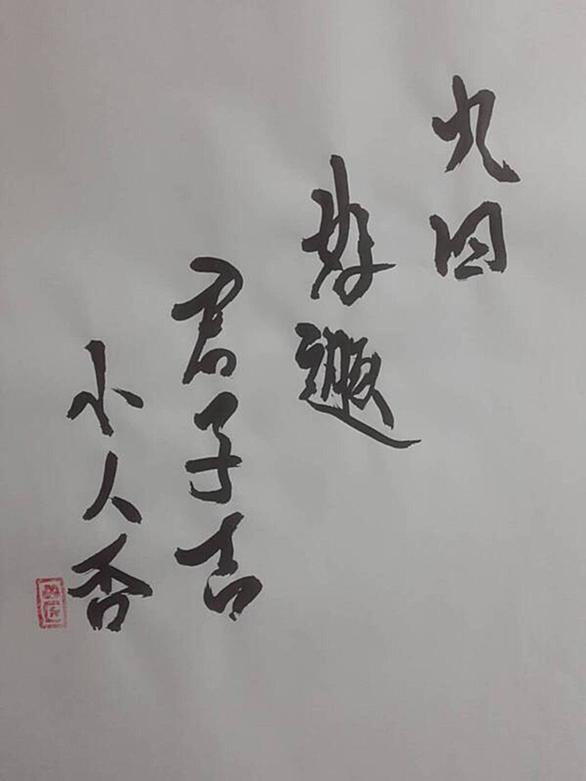 九四
好遯
君子吉
小人否